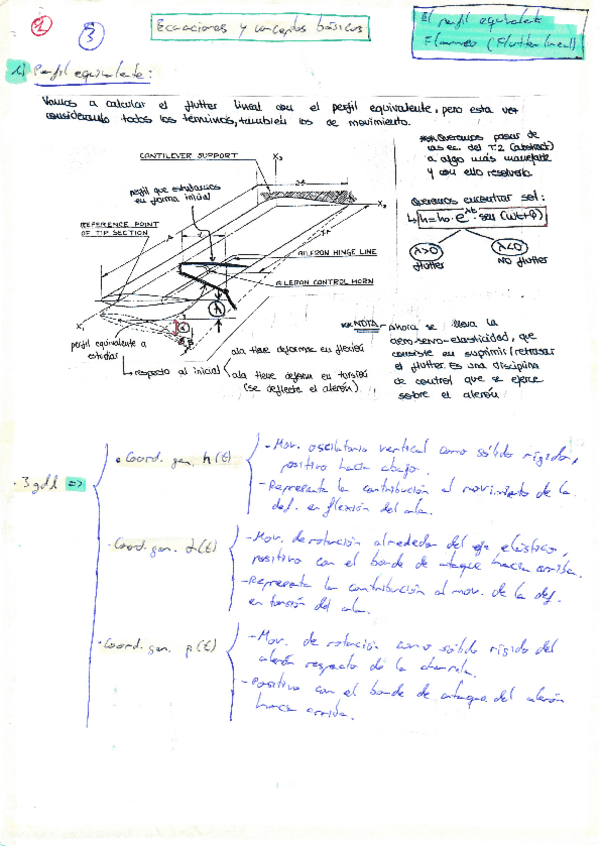 2
3
Ecuaciones y conceptos básicos
El perfil equivalente
Flameo (Flutter lineal)
1) Perfil equivalente:
Vamos a calcular el flutter lineal con el perfil equivalente, pero esta vez
considerando todos los términos, también los de movimiento.
Queremos pasar de
las ec. del T.2 (abstract)
a algo más manejable
y con ello resolverlo
Queremos encontrar sol:
h=h₀·e^λt·sen(ωt+φ)
λ>0
flutter
λ<0
NO flutter
CANTILEVER SUPPORT
X₃
perfil que estudiamos
en forma inicial
X₂
REFERENCE POINT
OF TIP SECTION
AILERON HINGE LINE
AILERON CONTROL HORN
h
X₁
α
perfil equivalente a
estudiar
respecto al inicial
ala tiene deforme en flexión
ala tiene deform en torsión
(se deflecte el alerón)
NOTA - ahora se lleva la
aero-servo-elasticidad, que
consiste en suprimir/retrasar
el flutter. Es una disciplina
de control que se ejerce
sobre el alerón
· 3 gdl =>
· Coord. gen. h(t)
- Mov. oscilatorio vertical como sólido rígido,
positivo hacia abajo.
- Representa la contribución al movimiento de la
def. en flexión del ala.
· Coord. gen. α(t)
- Mov. de rotación alrededor del eje elástico,
positivo con el borde de ataque hacia arriba.
- Representa la contribución al mov. de la def.
en torsión del ala.
· Coord. gen. β(t)
- Mov. de rotación como sólido rígido del
alerón respecto de la charnela.
- Positivo con el borde de ataque del alerón
hacia arriba.